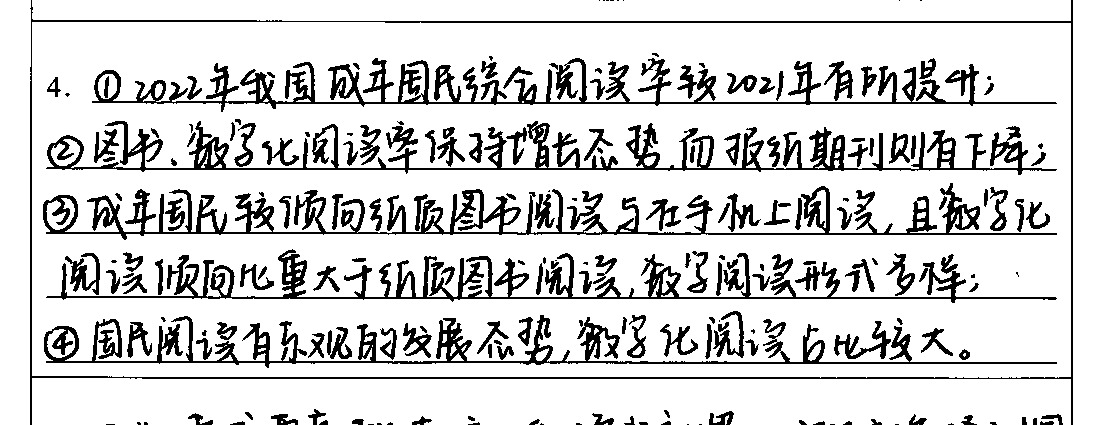 4. ①2022年我国成年国民综合阅读率较2021年有所提升;
②图书、数字化阅读率保持增长态势,而报纸期刊则有下降;
③成年国民较倾向纸质图书阅读与在手机上阅读,且数字化
阅读倾向比重大于纸质图书阅读,数字阅读形式多样;
④国民阅读有乐观的发展态势,数字化阅读占比较大。